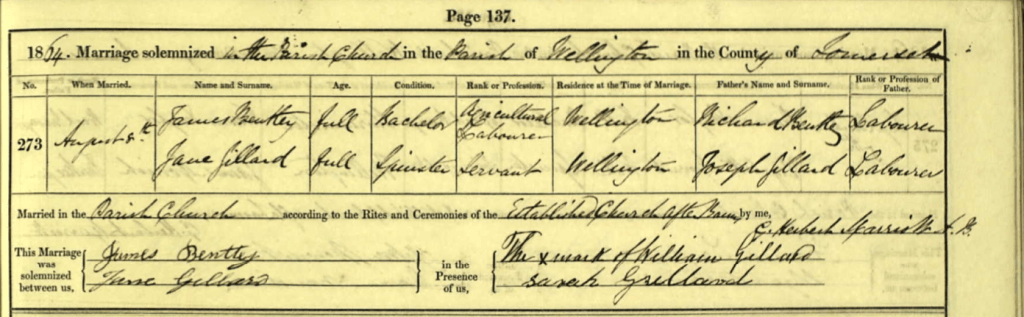 Page 137.
1864. Marriage solemnized in the Parish Church in the Parish of Wellington in the County of Somerset
No. When Married. Name and Surname. Age. Condition. Rank or Profession. Residence at the Time of Marriage. Father's Name and Surname. Rank or Profession of Father.
273 August 8th James Bentley full Bachelor Agricultural Labourer Wellington Richard Bentley Labourer
Jane Gillard full Spinster Servant Wellington Joseph Gillard Labourer
Married in the Parish Church according to the Rites and Ceremonies of the Established Church after Banns by me,
Herbert
This Marriage was solemnized between us, James Bentley Jane Gillard
in the Presence of us, The x mark of William Gillard Sarah